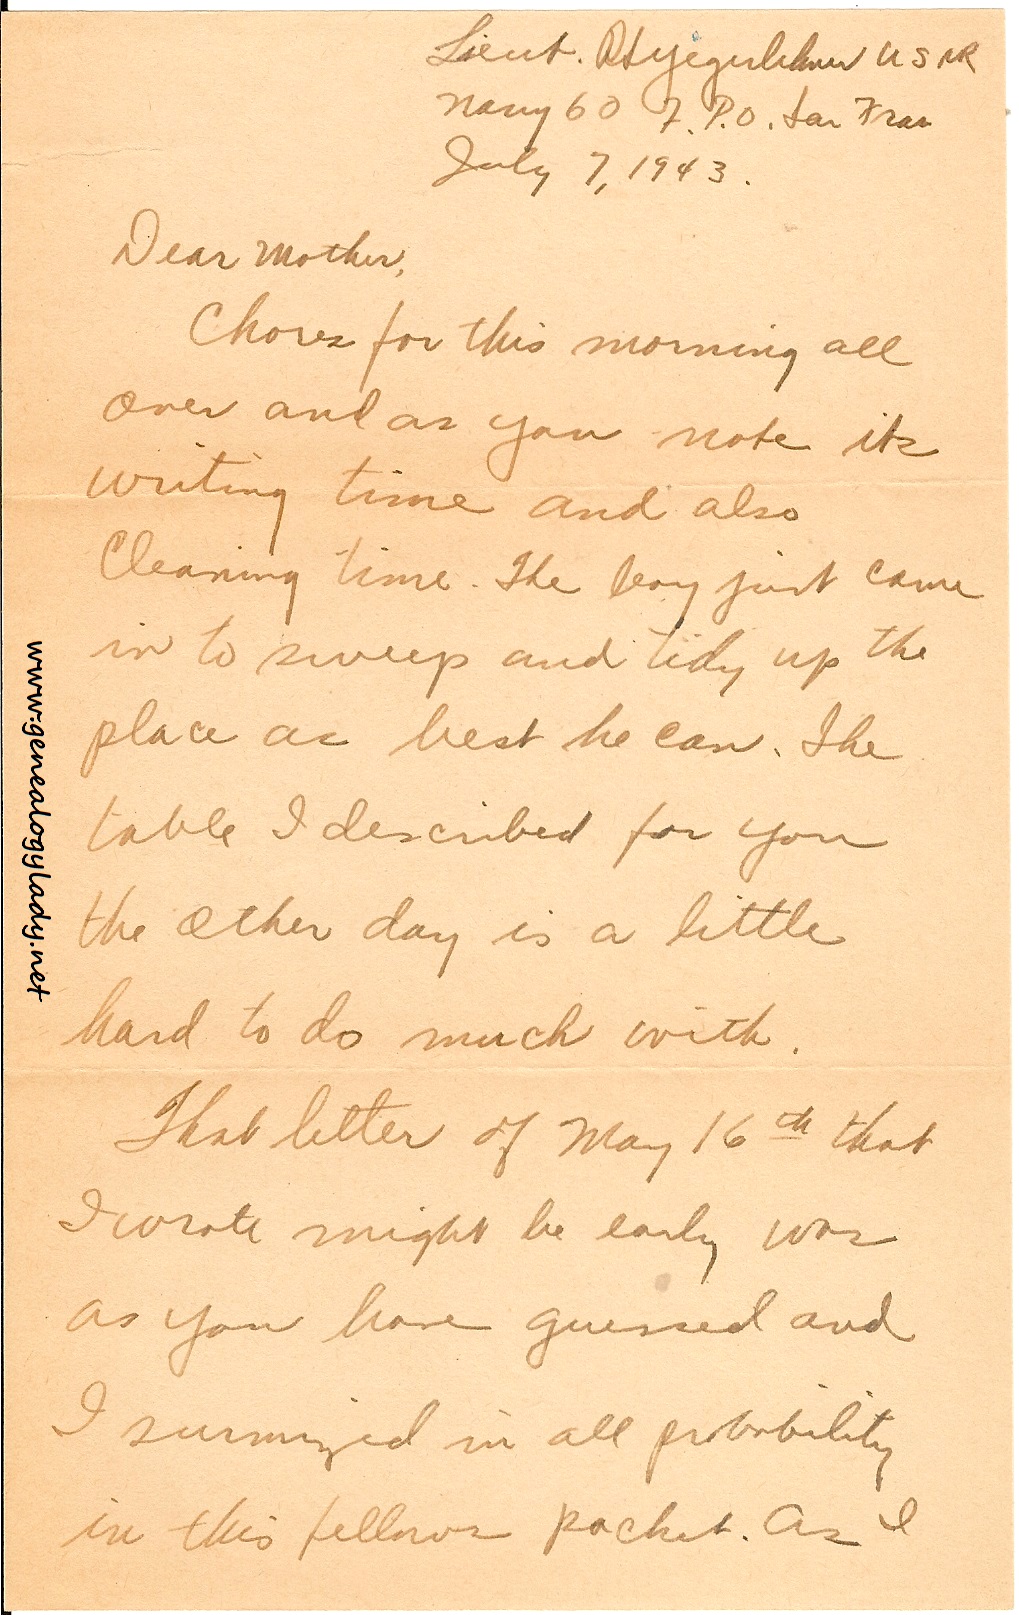 Lieut. RHYegerlehner USNR
Navy 60 F.P.O. San Fran
July 7, 1943.
Dear Mother,
Chores for this morning all
over and as you note its
writing time and also
Cleaning time. The boy just came
in to sweep and tidy up the
place as best he can. The
table I described for you
the other day is a little
hard to do much with.
That letter of May 16th that
I wrote might be early was
as you have guessed and
I surmized in all probability
in this fellows pocket. As I
www.genealogylady.net